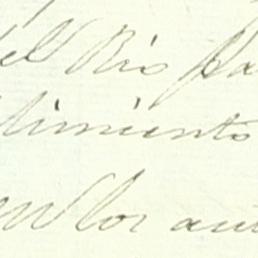 del Rio pa
limiento
en los aut